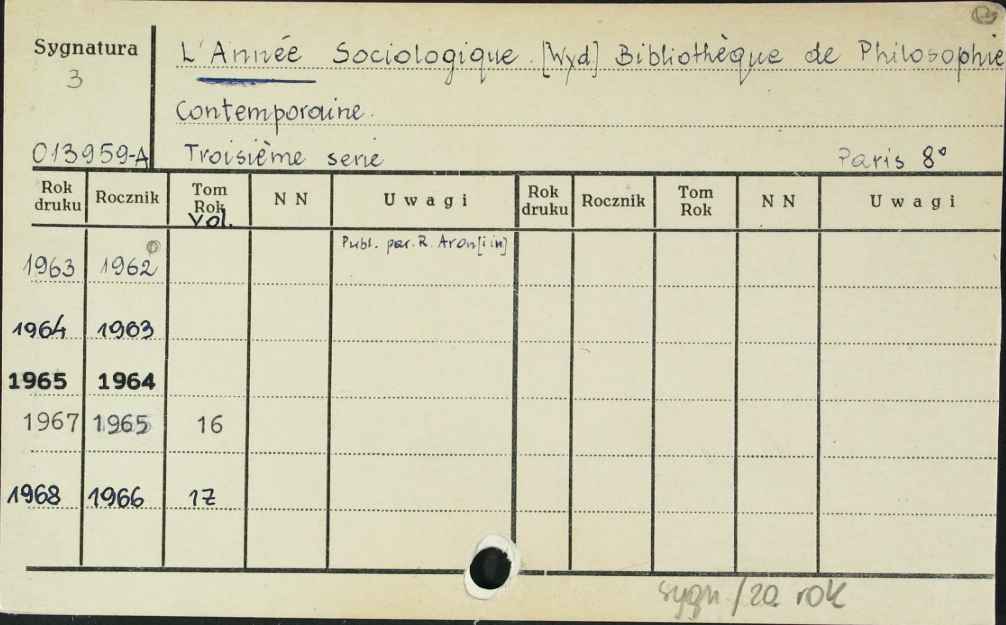 Sygnatura
3
L'Année Sociologique. [Wyd] Bibliothèque de Philosophie
Contemporaine.
013959-A Troisième serie Paris 8°
Rok druku Rocznik Tom Rok Vol. N N Uwagi Rok druku Rocznik Tom Rok N N Uwagi
Publ. par. R. Aron [i in]
1963 1962
1964 1963
1965 1964
1967 1965 16
1968 1966 17
sygn / za rok